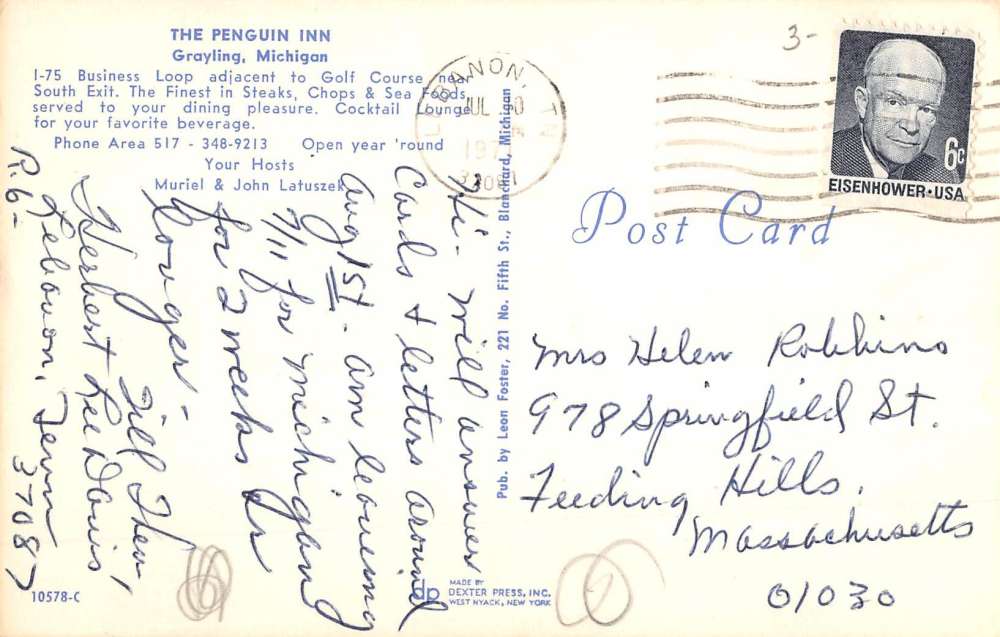 THE PENGUIN INN
Grayling, Michigan
I-75 Business Loop adjacent to Golf Course near
South Exit. The Finest in Steaks, Chops & Sea Foods,
served to your dining pleasure. Cocktail Lounge
for your favorite beverage.
Phone Area 517 - 348-9213 Open year 'round
Your Hosts
Muriel & John Latuszek
Hi - Will answer
Cards & letters around
Aug 1st - am leaving
7/11 for Michigan
for 2 weeks or
longer -
Till Then,
Herbert Lee Davis
R.6 - Lebanon, Tenn
37087
10578-C
Pub. by Leon Foster, 221 No. Fifth St., Blanchard, Michigan
dp MADE BY
DEXTER PRESS, INC.
WEST NYACK, NEW YORK
LEBANON, TN
JUL
3-
6c
EISENHOWER·USA
Post Card
Mrs Helen Robbins
978 Springfield St.
Feeding Hills,
Massachusetts
01030